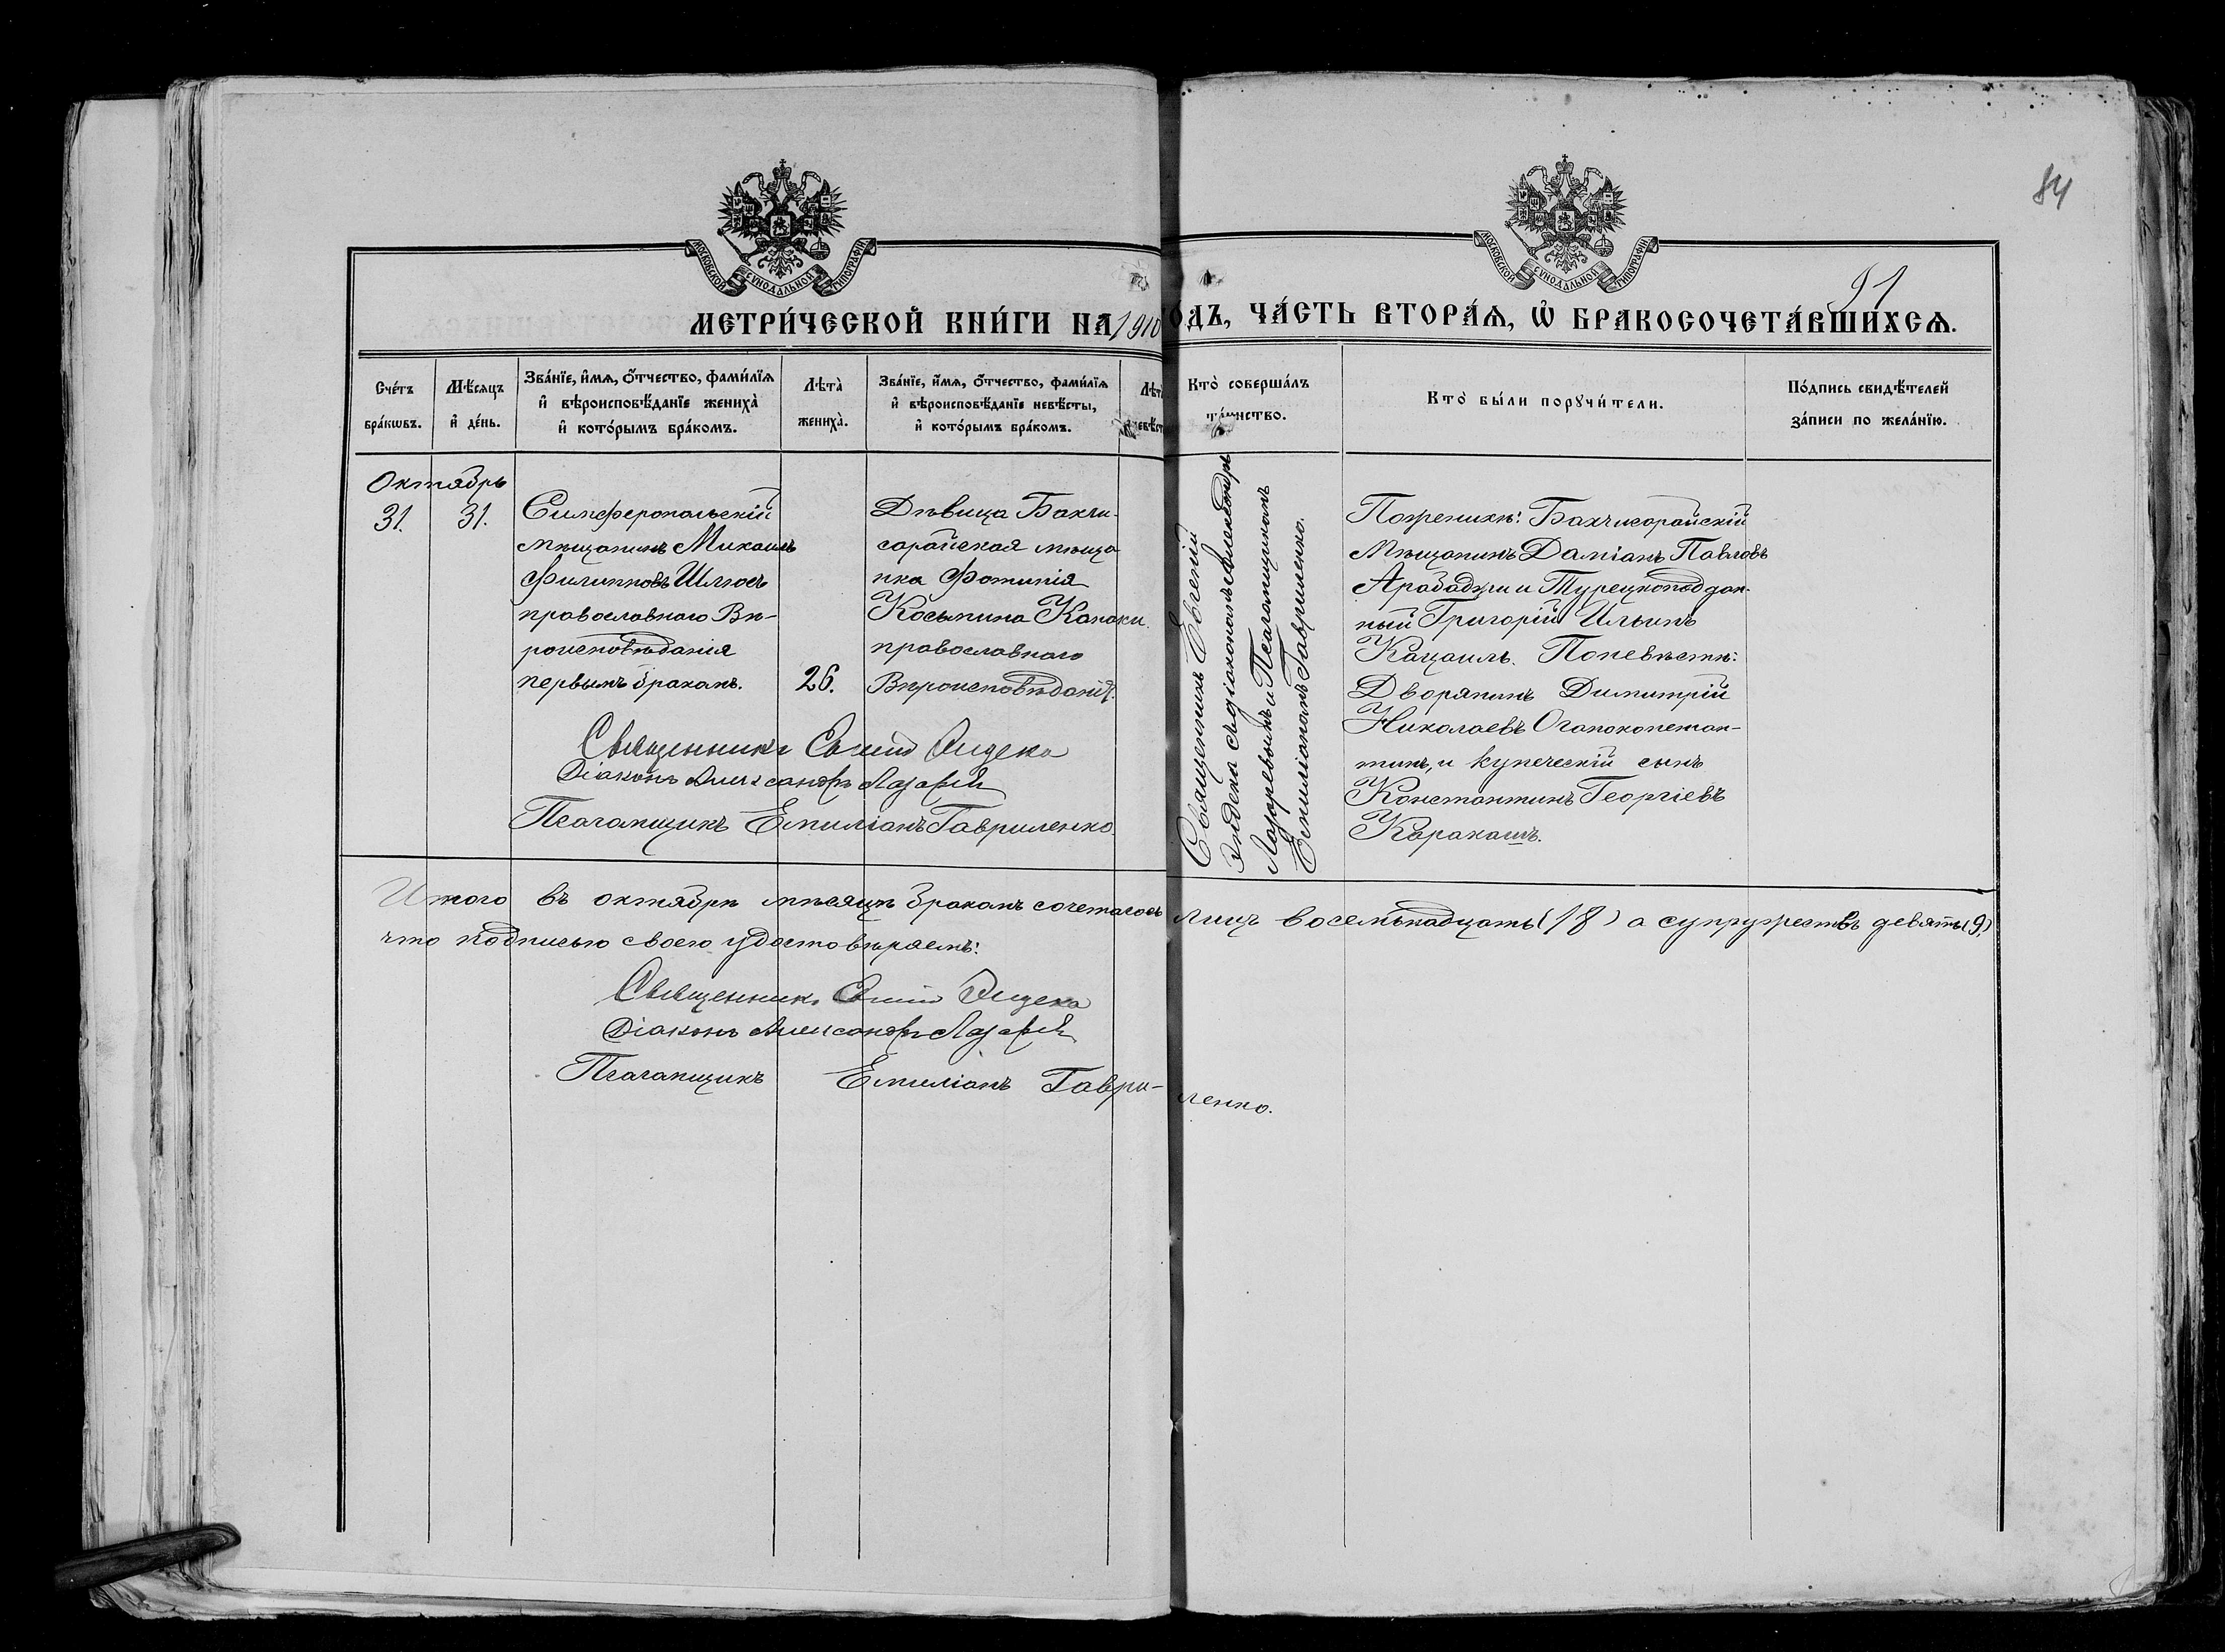 84
91
МОСКОВСКОЙ СУНОДАЛЬНОЙ ТИПОГРАФІИ
МОСКОВСКОЙ СУНОДАЛЬНОЙ ТИПОГРАФІИ
МЕТРИ́ЧЕСКОЙ КНИ́ГИ НА 1910
ОДЪ, ЧА́СТЬ ВТОРА́Ѧ, Ѽ БРАКОСОЧЕТА́ВШИХСѦ.
Сче́тъ
бра́кѡвъ.
Мѣ́сяцъ
и҆ де́нь.
Зва́нїе, и҆́мѧ, ѻ҆́тчество, фами́лїѧ
и҆ вѣроисповѣ́данїе жениха̀
и҆ кото́рымъ бра́комъ.
Лѣта̀
жениха̀.
Зва́нїе, и҆́мѧ, ѻ҆́тчество, фами́лїѧ
и҆ вѣроисповѣ́данїе невѣ́сты,
и҆ кото́рымъ бра́комъ.
Лѣта̀
невѣст
Кто̀ соверша́лъ
та́инство.
Кто̀ бы́ли порꙋчи́тели.
По́дпись свидѣ́телей
за́писи по жела́нїю.
Октябрь
31.
31.
Симферопольскій
мѣщанинъ Михаилъ
Филипповъ Шлюсъ
православнаго Вѣ-
роисповѣданія
первымъ бракомъ.
26.
Дѣвица Бахчи-
сарайская мѣща
нка Фотинія
Косьмина Канаки
православнаго
Вѣроисповѣданія.
Священникъ Евгеній
Эндека съ діакономъ Александръ
Лазаревымъ и Псаломщикомъ
Емиліаномъ Гавриленко.
Пожениху: Бахчисарайскій
Мѣщанинъ Даміанъ Павловъ
Арабаджи и Турецкоподдан-
ный Григорій Ильинъ
Кацаиль. Поневѣстѣ:
Дворянинъ Димитрій
Николаевъ
и купеческій сынъ
Константинъ Георгіевъ
Каракашъ.
Священникъ Евгеній Эндека
Діаконъ Александръ Лазаревъ
Псаломщикъ Емиліанъ Гавриленко.
Итого въ октябрѣ мѣсяцѣ бракомъ сочеталось лицъ восемьнадцать (18) а супружествъ девять (9)
что подписью своею удостовѣряемъ:
Священникъ Евгеній Эндека
Діаконъ Александръ Лазаревъ
Псаломщикъ Емиліанъ Гаври-
ленко.